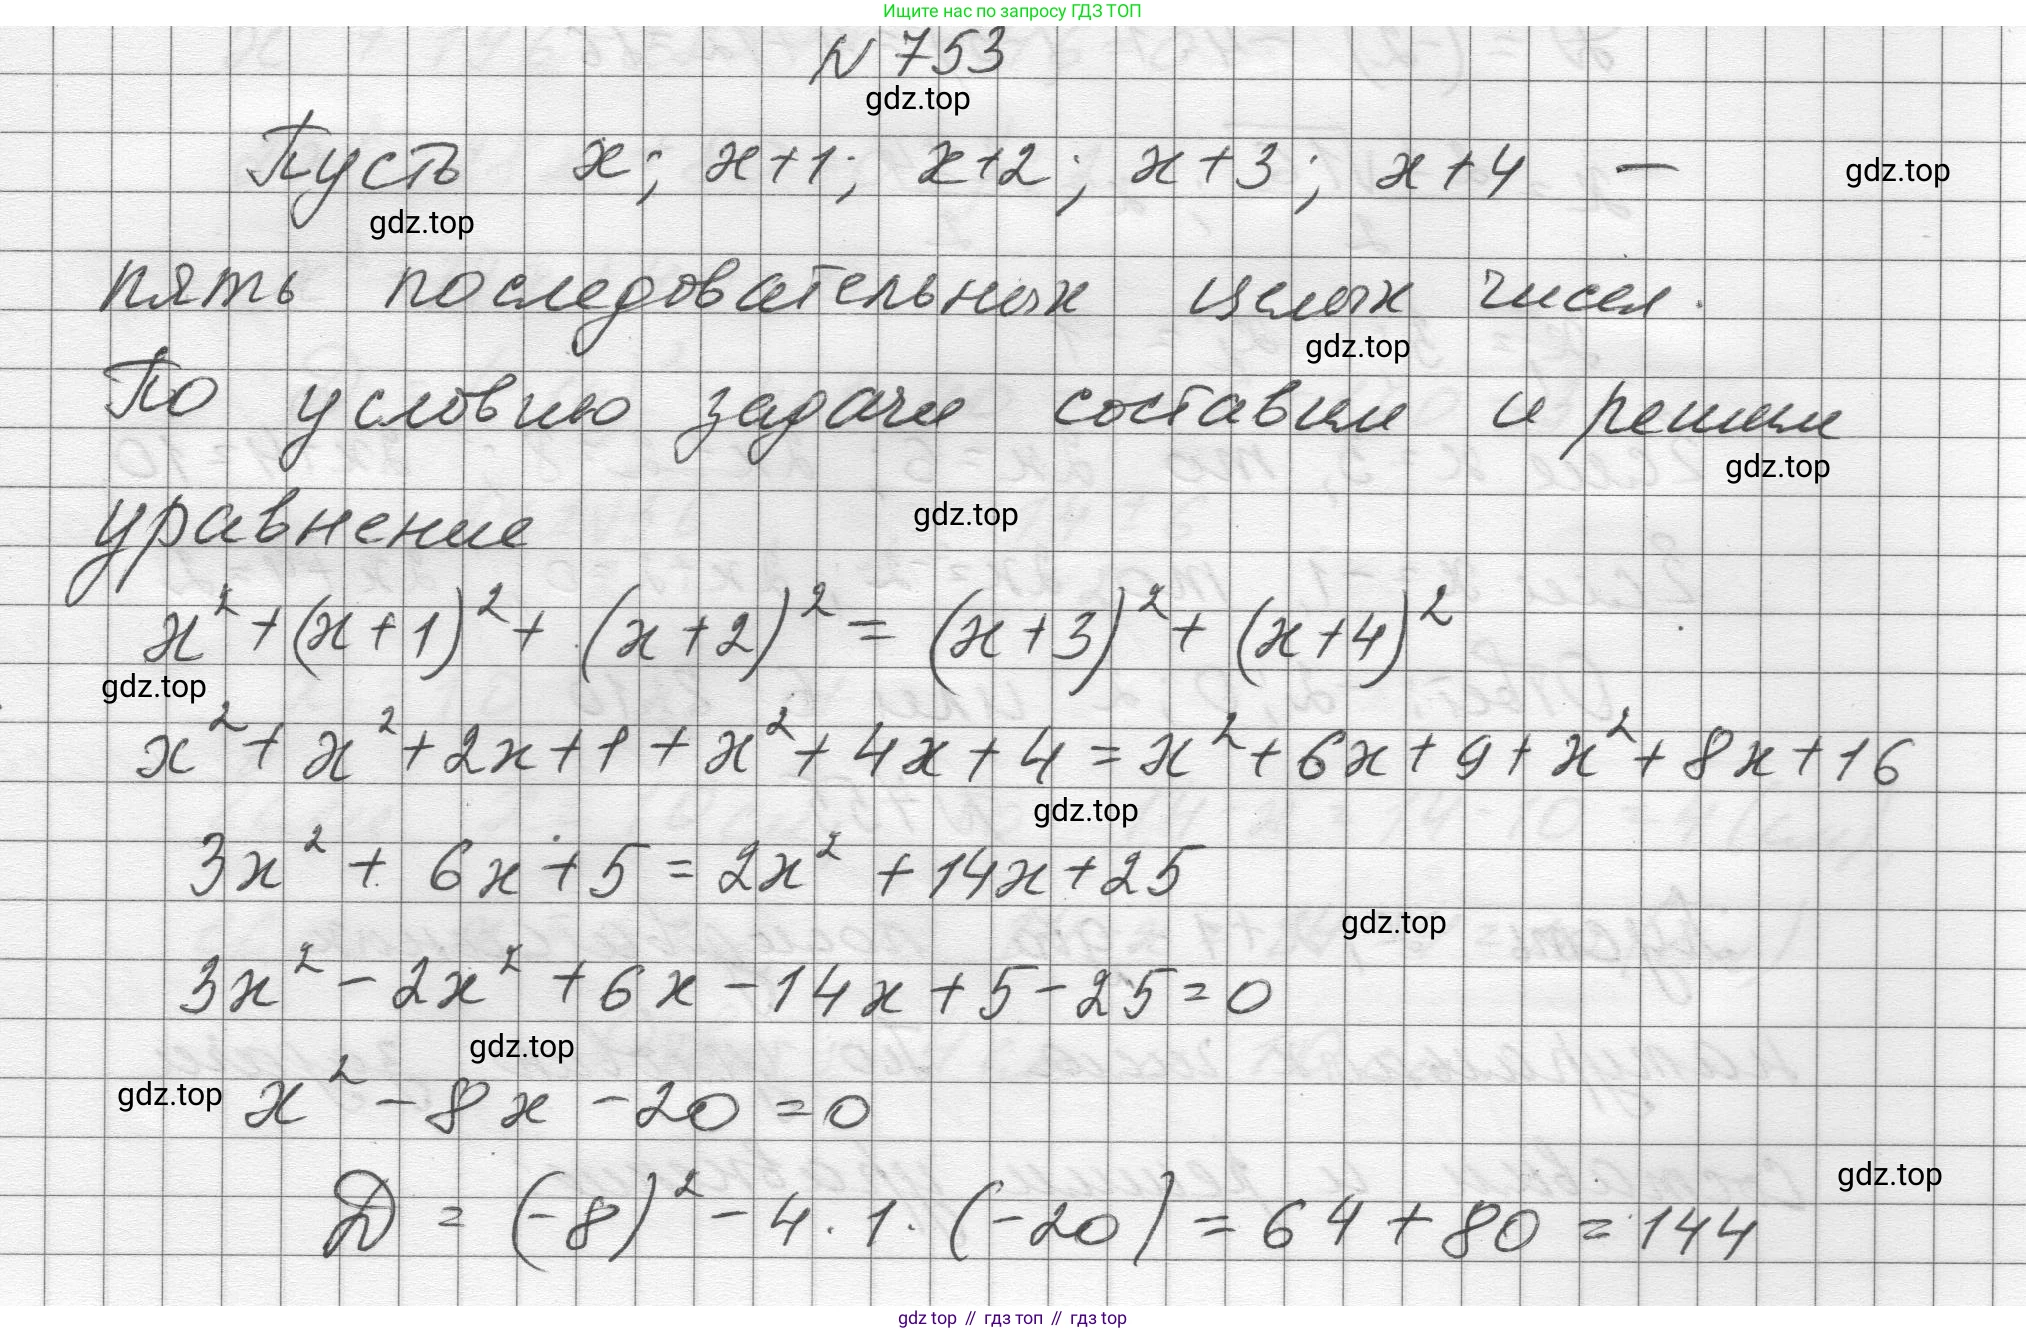 Ищите нас по запросу ГДЗ ТОП
N 753
gdz.top
Пусть x; x+1; x+2; x+3; x+4 —
gdz.top
gdz.top
пять последовательных целых чисел.
gdz.top
По условию задачи составим и решим
gdz.top
уравнение
gdz.top
x² + (x+1)² + (x+2)² = (x+3)² + (x+4)²
gdz.top
x² + x² + 2x + 1 + x² + 4x + 4 = x² + 6x + 9 + x² + 8x + 16
gdz.top
3x² + 6x + 5 = 2x² + 14x + 25
gdz.top
3x² - 2x² + 6x - 14x + 5 - 25 = 0
gdz.top
gdz.top
x² - 8x - 20 = 0
gdz.top
Д = (-8)² - 4 · 1 · (-20) = 64 + 80 = 144
gdz top // гдз топ // гдз top